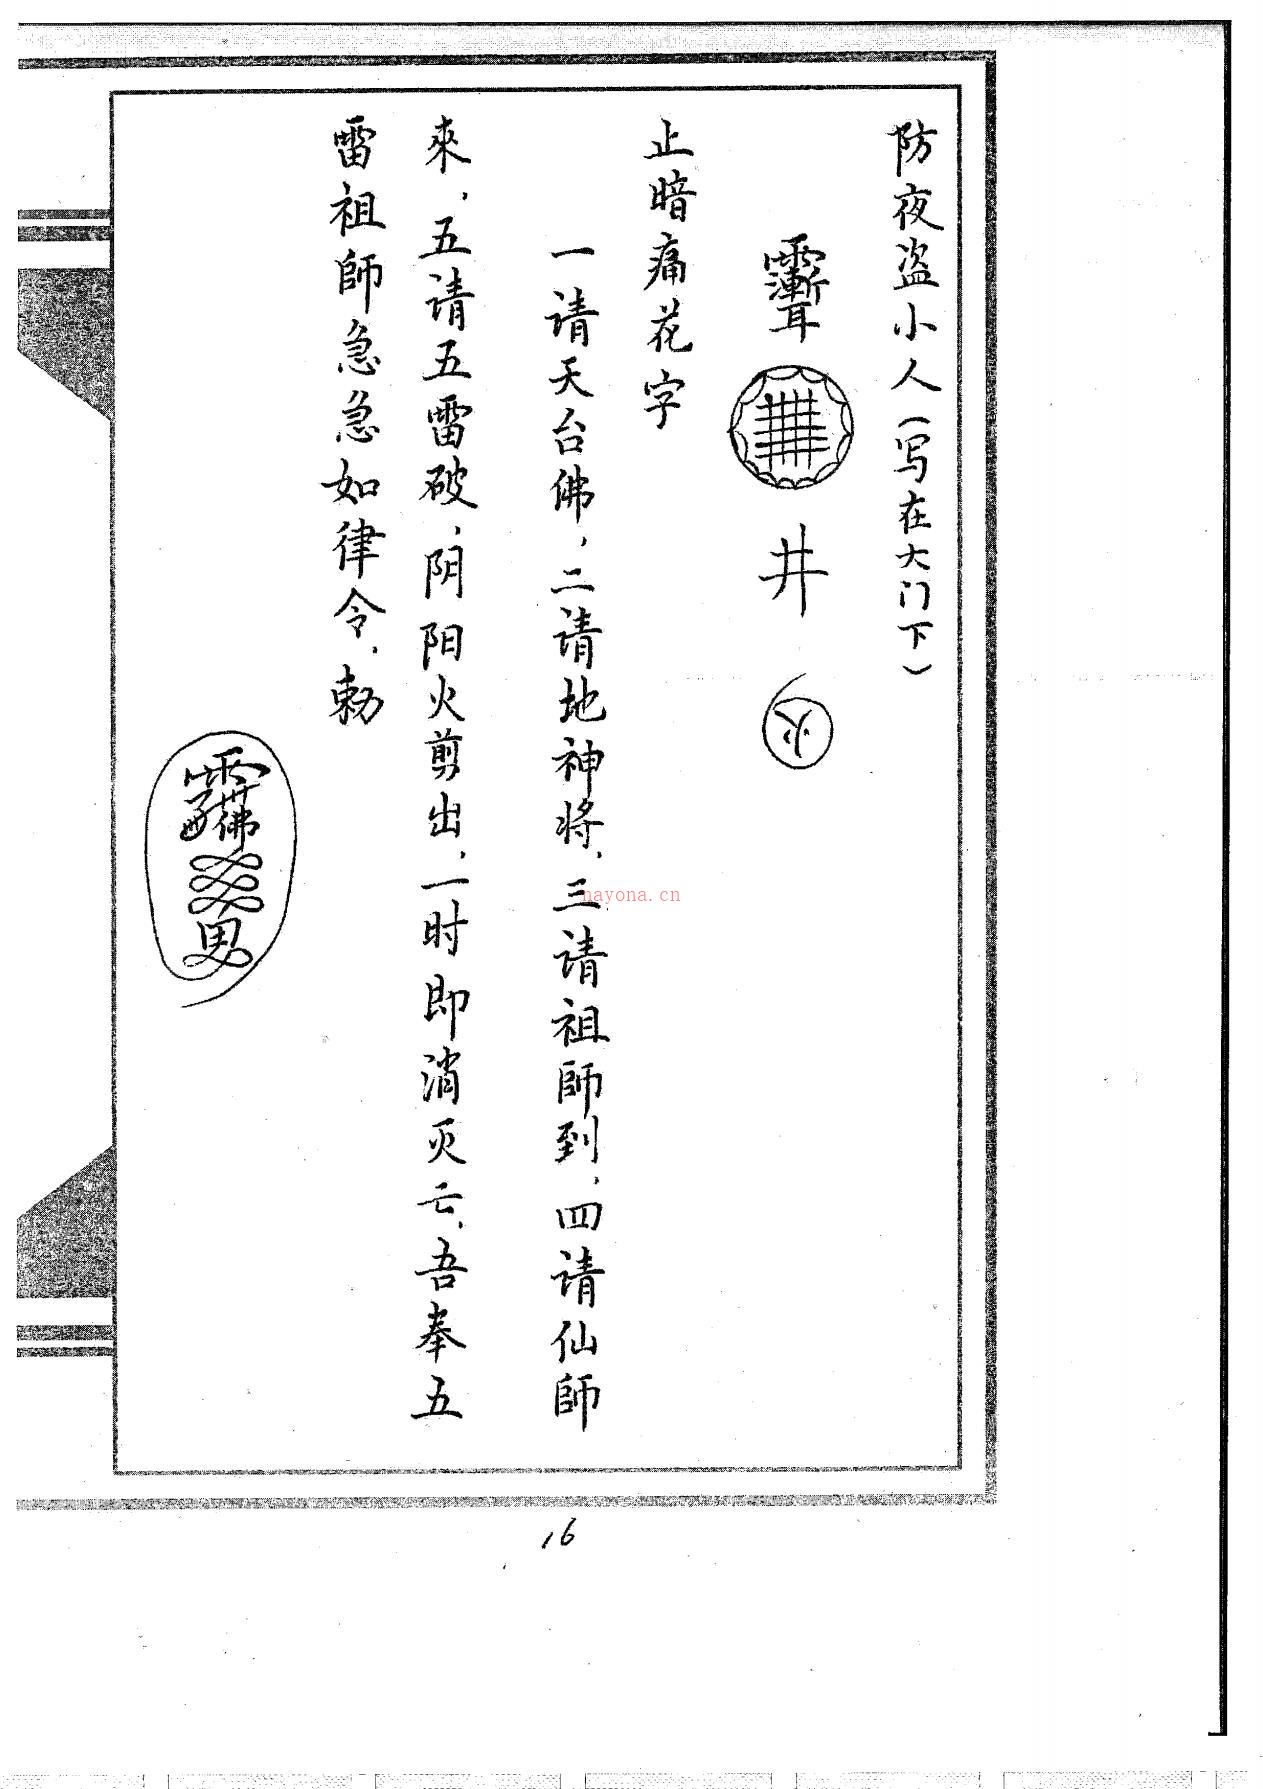 防夜盗小人（写在大门下）
井
火
止暗痛花字
一请天台佛，二请地神将，三请祖師到，四请仙師
來，五请五雷破，阴阳火剪出，一时即消灭亡，吾奉五
雷祖師急急如律令，勅
佛
男
nayona.cn
16